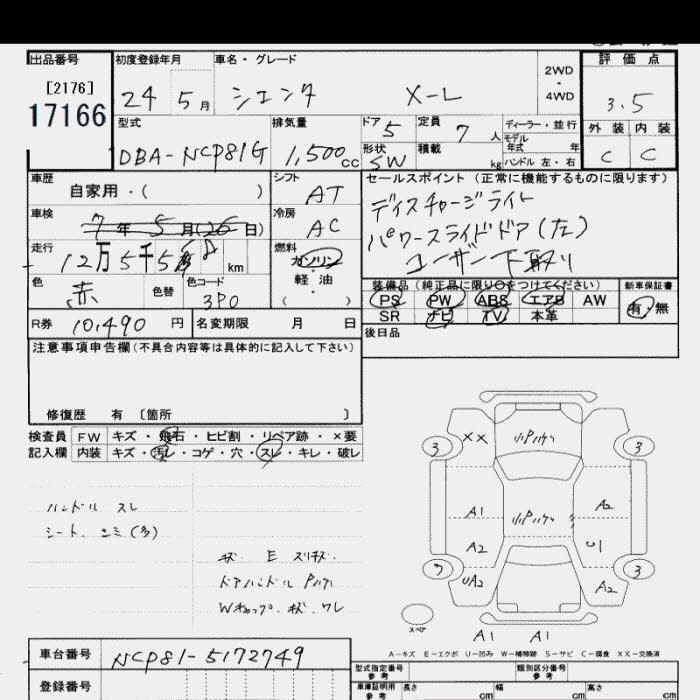 出品番号 初度登録年月 車名・グレード 2WD・4WD 評価点
[2176]
17166
24 5月 シエンタ X-L 3.5
型式 排気量 ドア 定員 ディーラー・並行 外装 内装
DBA-NCP81G 1,500cc 5 7人 モデル年式 年 C C
形状 SW 積載 kg ハンドル 左・右
車歴 シフト セールスポイント(正常に機能するものに限ります)
自家用・( ) AT ディスチャージライト
車検 冷房 パワースライドドア(左)
7年5月(26日) AC ユーザー下取り
走行 燃料
12万5千5 km ガソリン・軽油・( )
色 色替 色コード 装備品(純正品に限り○をつけてください) 新車保証書
赤 3P0 PS PW ABS エアB AW 有・無
SR ナビ TV 本革
R券 10,490円 名変期限 月 日 後日品
注意事項申告欄(不具合内容等は具体的に記入して下さい)
修復歴 有 〔箇所 〕
検査員 FW キズ・飛石・ヒビ割・リペア跡・×要
記入欄 内装 キズ・汚レ・コゲ・穴・スレ・キレ・破レ
ハンドル スレ
シート シミ(多)
状 E スリキズ
ドアハンドル Pハケ
Wキャップ 状 ワレ
3 XX 小Pハケ 3
A1 小Pハケ A2
A2 U1
UA2 A2 3
スペア
A1 A1
A-キズ E-エクボ U-凹み W-補修跡 S-サビ C-腐食 XX-交換済
車台番号 NCP81-5172749
型式指定番号 参考 類別区分番号 参考
登録番号 車庫証明用 参考 長さ cm 幅 cm 高さ cm